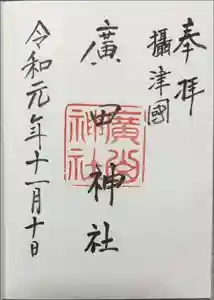 奉拝
攝津國
廣田神社
令和元年十一月十日
廣田神社